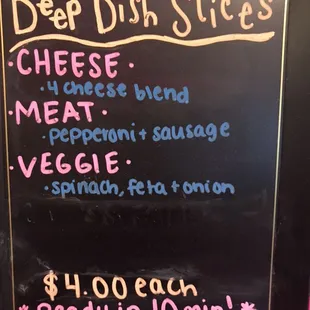 Deep Dish Slices
· CHEESE ·
· 4 cheese blend
· MEAT ·
· pepperoni + sausage
· VEGGIE ·
· spinach, feta + onion
$4.00 each
* Ready in 10 min! *